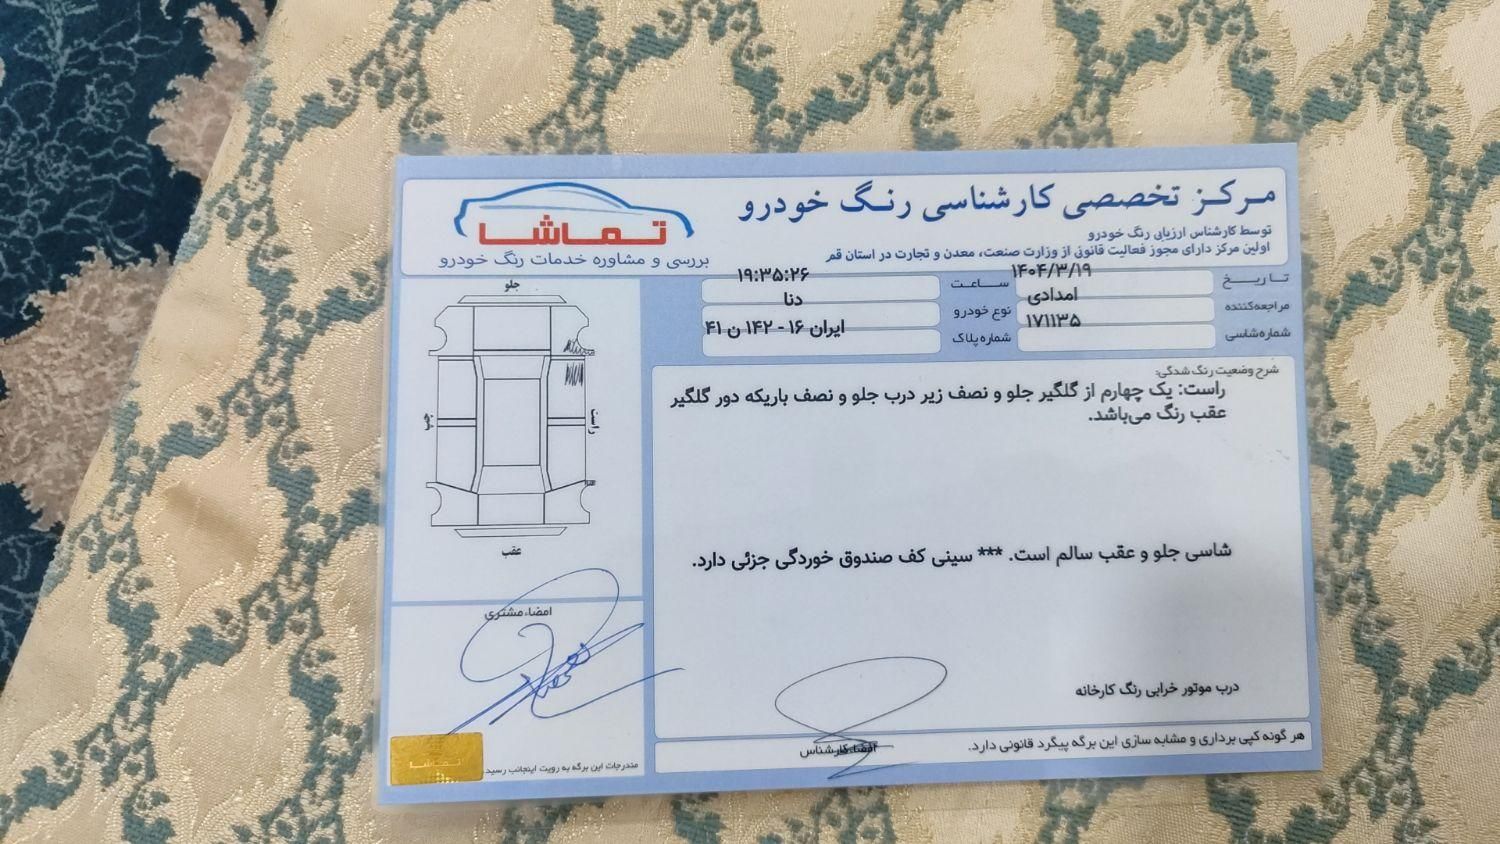 مرکز تخصصی کارشناسی رنگ خودرو
توسط کارشناس ارزیابی رنگ خودرو
اولین مرکز دارای مجوز فعالیت قانونی از وزارت صنعت، معدن و تجارت در استان قم
تماشا
بررسی و مشاوره خدمات رنگ خودرو
تاریخ ۱۴۰۴/۳/۱۹ ساعت ۱۹:۳۵:۲۶
مراجعه‌کننده امدادی نوع خودرو دنا
شماره شاسی ۱۷۱۱۳۵ شماره پلاک ایران ۱۶ - ۱۴۲ ن ۴۱
شرح وضعیت رنگ شدگی:
راست: یک چهارم از گلگیر جلو و نصف زیر درب جلو و نصف باریکه دور گلگیر
عقب رنگ می‌باشد.
شاسی جلو و عقب سالم است. *** سینی کف صندوق خوردگی جزئی دارد.
درب موتور خرابی رنگ کارخانه
امضاء کارشناس
هر گونه کپی برداری و مشابه سازی این برگه پیگرد قانونی دارد.
جلو
راست
چپ
عقب
امضاء مشتری
مندرجات این برگه به رویت اینجانب رسید.
تماشا